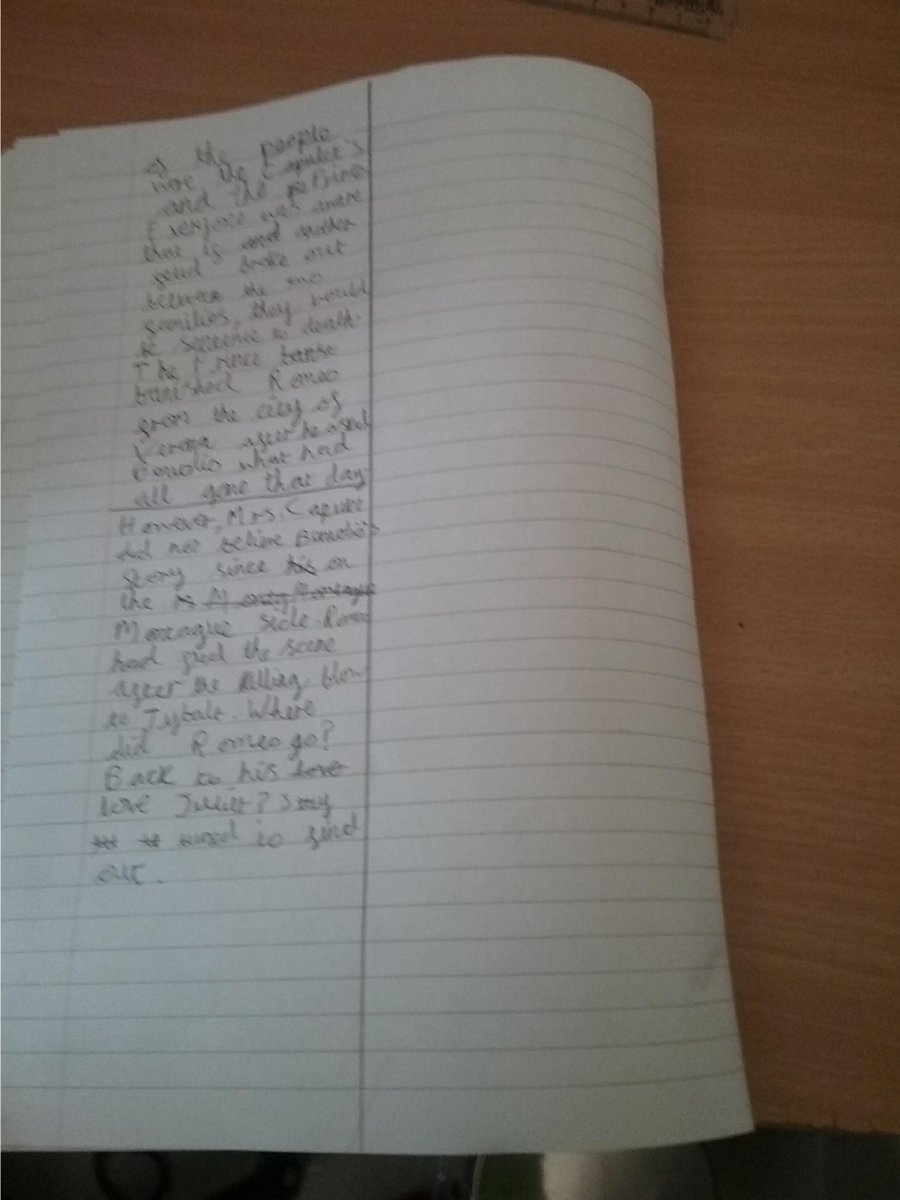 of the people
were the Capulet's
and the Prince
Everyone was aware
that is and another
feud broke out
between the two
families, they would
be sentence to death.
The Prince banse
banished Romeo
from the city of
Verona after he asked
Benvolio what had
all gone that day
However, Mrs. Capulet
did not belive Benvolio's
Story since his on
the
Montague side. Romeo
had fled the scene
after the killing blow
to Tybalt. Where
did Romeo go?
Back to his lover
love Juliet? Stay
tuned to find
out.